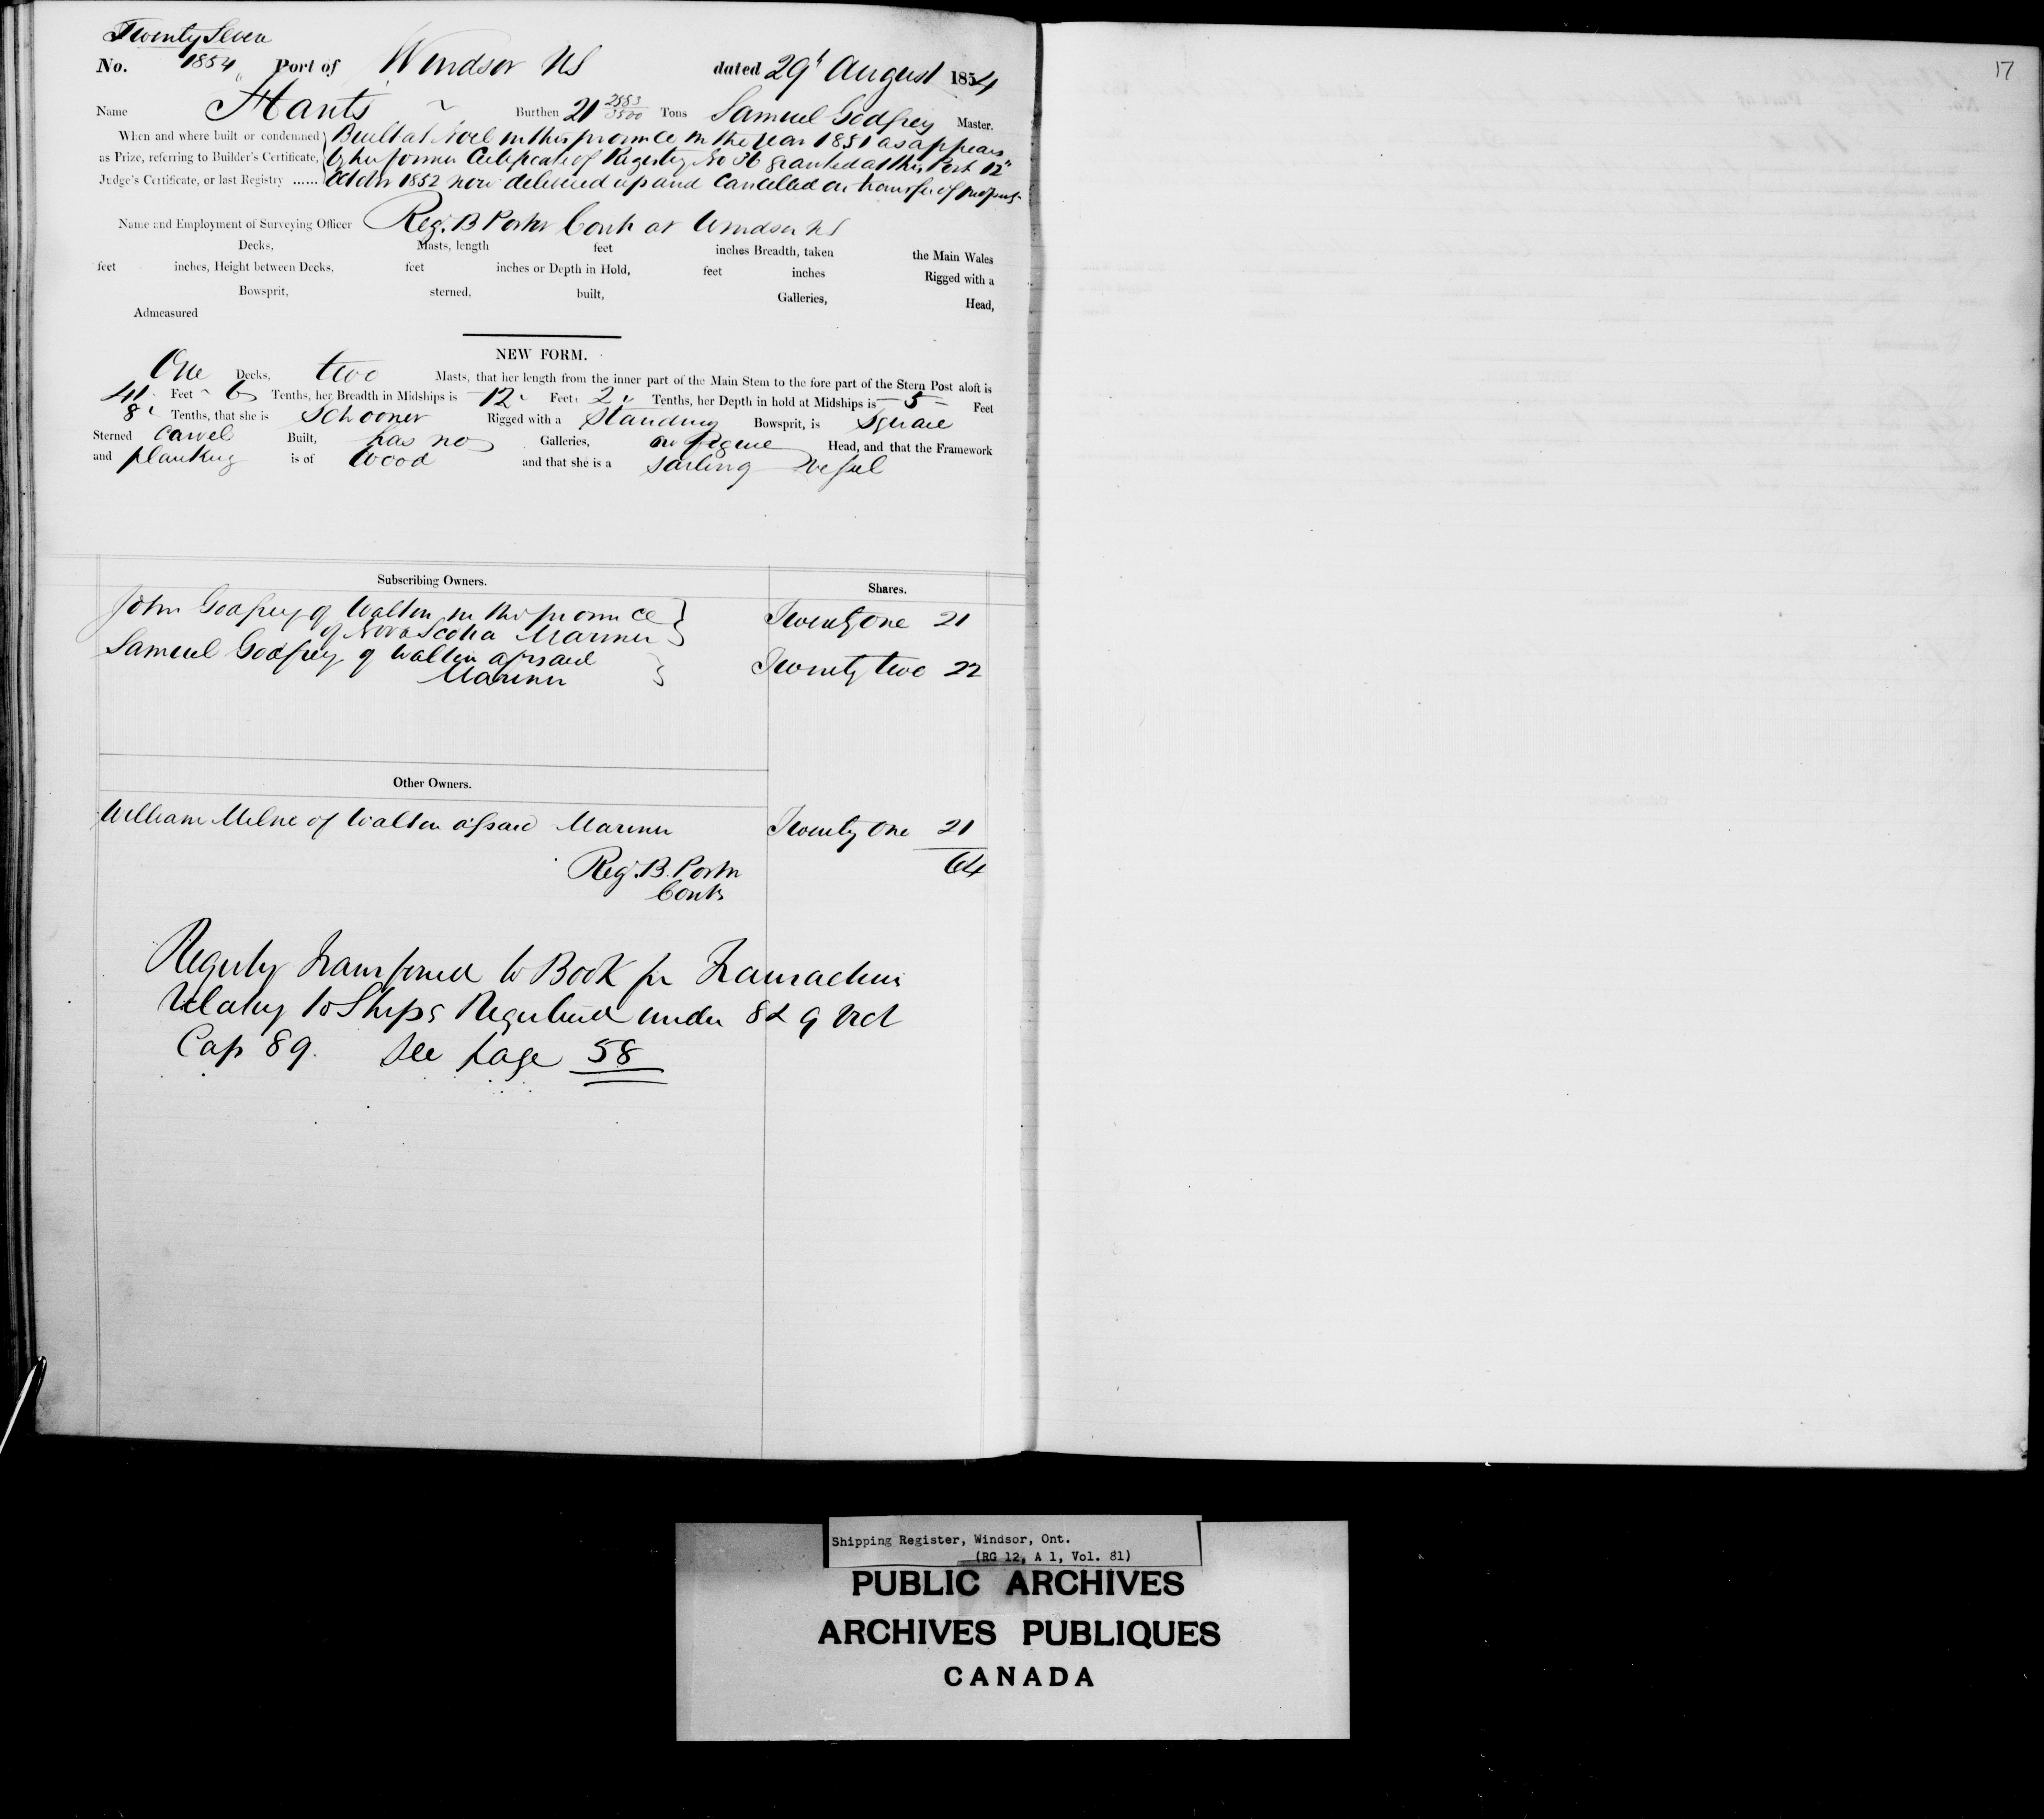 Twenty Seven
No. 1854 Port of Windsor NS dated 29t August 1854
17
Name Hants Burthen 21 2583/3500 Tons Samuel Godfrey Master.
When and where built or condemned Built at Noel in this province in the year 1851 as appears
as Prize, referring to Builder's Certificate, by her former Certificate of Registry No 36 granted at this Port 12"
Judge's Certificate, or last Registry ...... October 1852 now delivered up and Cancelled on transfer of
Name and Employment of Surveying Officer Reg. B Porter Contr at Windsor NS
Decks, Masts, length feet inches Breadth, taken the Main Wales
feet inches, Height between Decks, feet inches or Depth in Hold, feet inches Rigged with a
Bowsprit, sterned, built, Galleries, Head,
Admeasured
NEW FORM.
One Decks, two Masts, that her length from the inner part of the Main Stem to the fore part of the Stern Post aloft is
41 Feet 6 Tenths, her Breadth in Midships is 12 Feet 2 Tenths, her Depth in hold at Midships is 5 Feet
8 Tenths, that she is Schooner Rigged with a Standing Bowsprit, is Square
Sterned Carvel Built, has no Galleries, no figure Head, and that the Framework
and planking is of Wood and that she is a sailing vessel
Subscribing Owners. Shares.
John Godfrey of Walton in the province
of Nova Scotia Mariner Twenty one 21
Samuel Godfrey of Walton aforsaid
Mariner Twenty two 22
Other Owners.
William Milne of Walton afsaid Mariner Twenty One 21
64
Reg. B. Porter
Contr
Registry Transferred to Book for Transactions
relating to Ships Registered under 8 & 9 Vict
Cap 89. See page 58
Shipping Register, Windsor, Ont.
(RG 12, A 1, Vol. 81)
PUBLIC ARCHIVES
ARCHIVES PUBLIQUES
CANADA